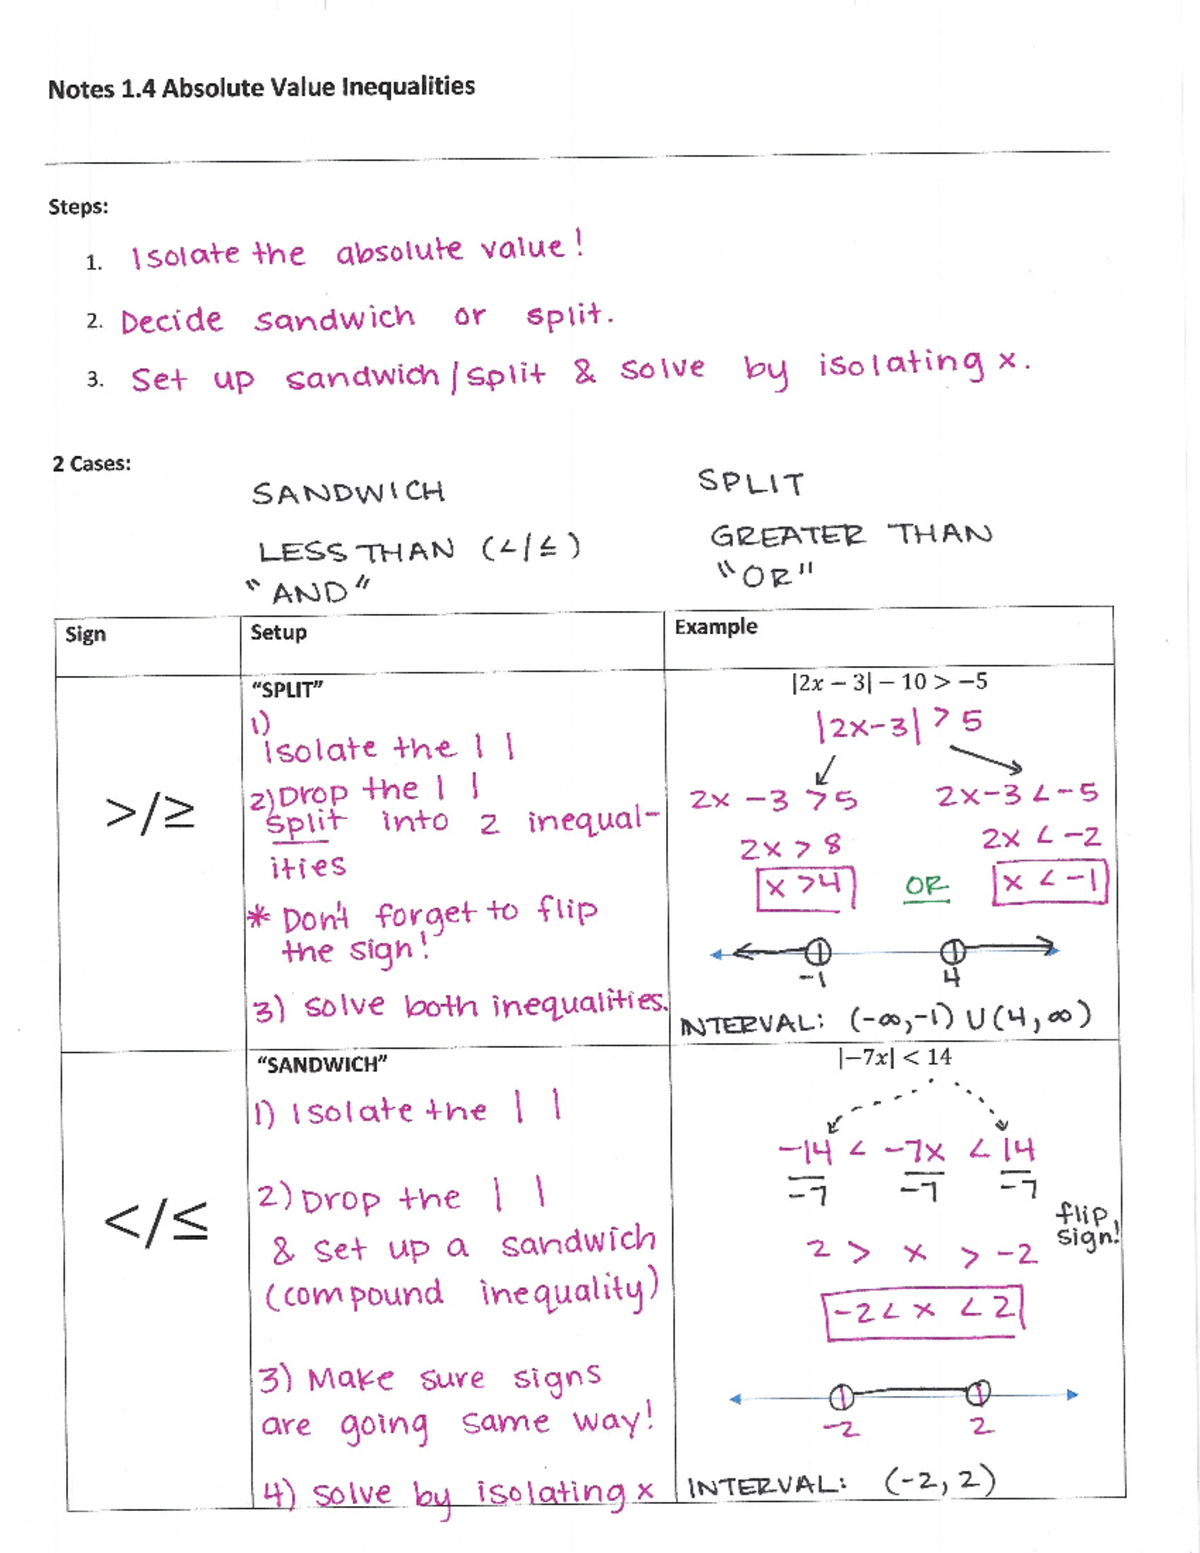 Notes 1.4 Absolute Value Inequalities
Steps:
1. Isolate the absolute value!
2. Decide sandwich or split.
3. Set up sandwich/split & solve by isolating x.
2 Cases:
SANDWICH
LESS THAN (</≤)
"AND"
SPLIT
GREATER THAN
"OR"
Sign
Setup
Example
>/≥
"SPLIT"
1)
Isolate the | |
2) Drop the | |
split into 2 inequal-
ities
* Don't forget to flip
the sign!
3) solve both inequalities.
|2x − 3| − 10 > −5
|2x-3| > 5
2x -3 > 5
2x-3 < -5
2x > 8
2x < -2
x > 4
OR
x < -1
-1
4
INTERVAL: (-∞,-1) ∪ (4,∞)
</≤
"SANDWICH"
1) Isolate the | |
2) Drop the | |
& set up a sandwich
(compound inequality)
3) Make sure signs
are going same way!
4) solve by isolating x
|−7x| < 14
-14 < -7x < 14
-7 -7 -7
flip
sign!
2 > x > -2
-2 < x < 2
-2
2
INTERVAL: (-2, 2)